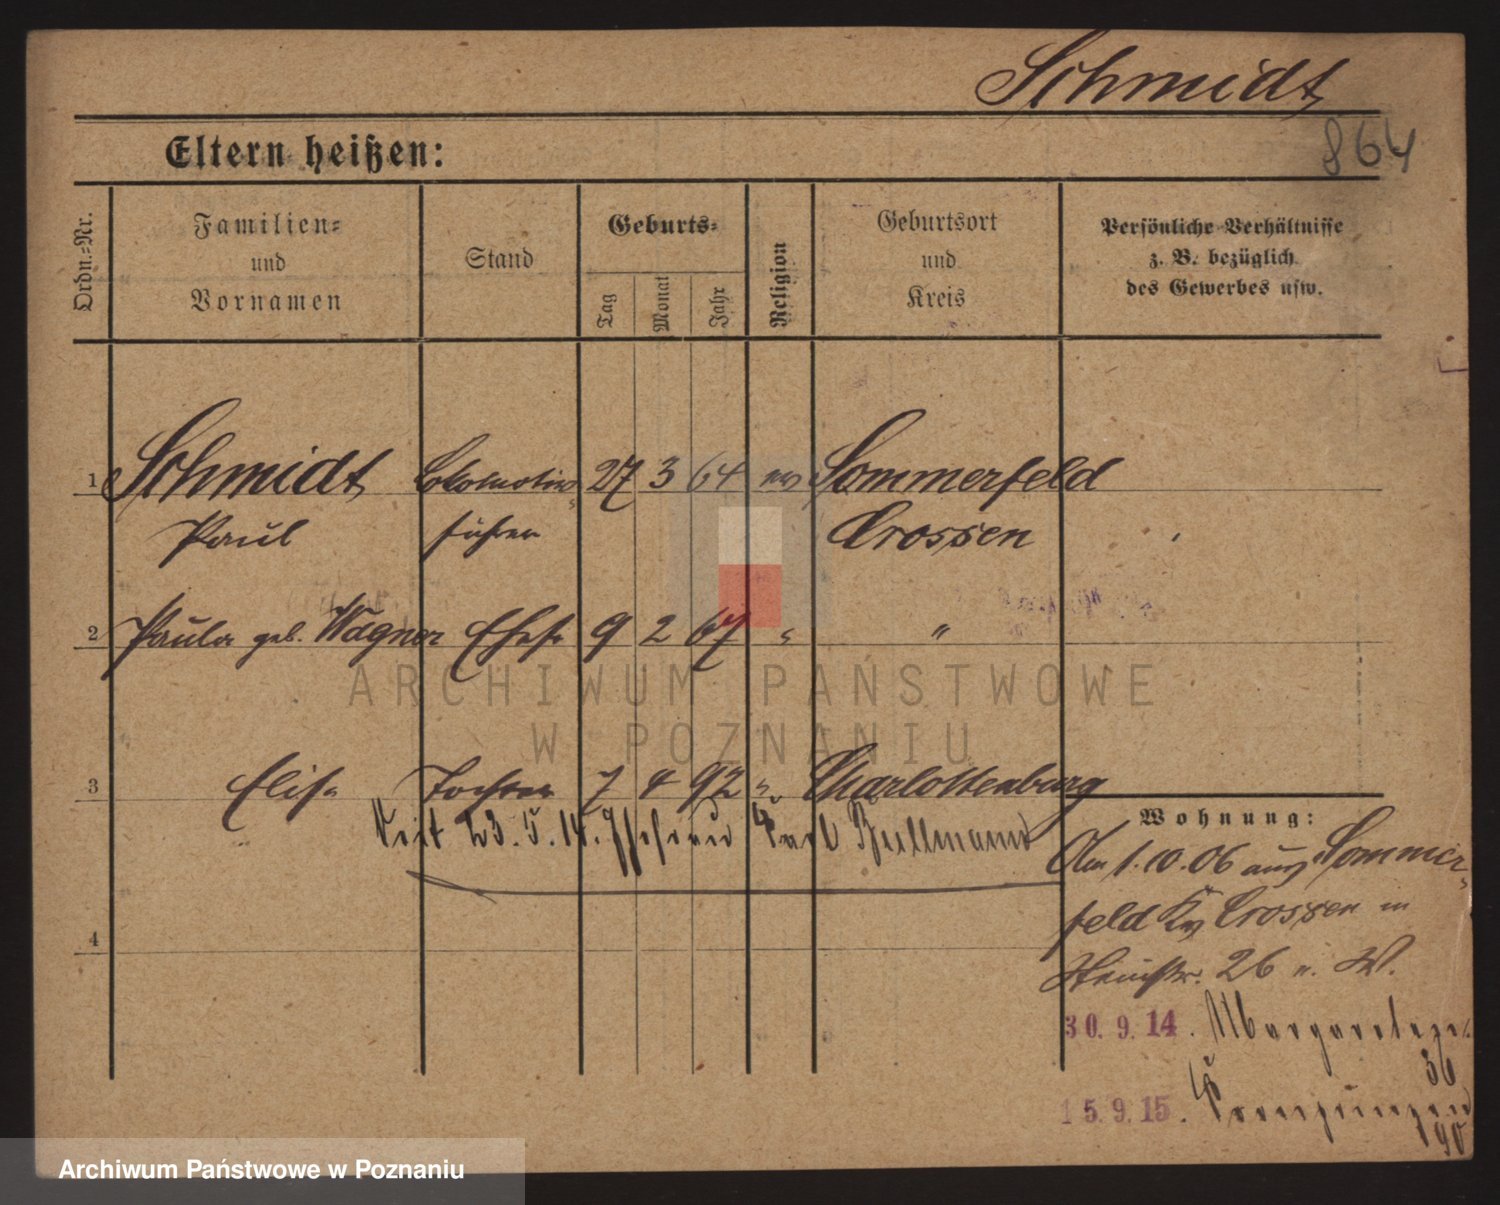 Schmidt
864
Eltern heißen:
Ordn.=Nr.
Familien=
und
Vornamen
Stand
Geburts=
Tag
Monat
Jahr
Religion
Geburtsort
und
Kreis
Persönliche Verhältnisse
z. B. bezüglich
des Gewerbes usw.
1 Schmidt Lokomotiv= 27 3 64 ev Sommerfeld
Paul führer Crossen
2 Paula geb. Wagner Ehefr 9 2 67 " "
3 Elise Tochter 7 4 92 " Charlottenburg
Seit 23.5.14. Ehefrau Paul Bullmann
4
Wohnung:
Am 1.10.06 aus Sommer=
feld Kr Crossen in
26 n. W.
30.9.14. Margareten
36
15.9.15.
190
ARCHIWUM PAŃSTWOWE
W POZNANIU
Archiwum Państwowe w Poznaniu